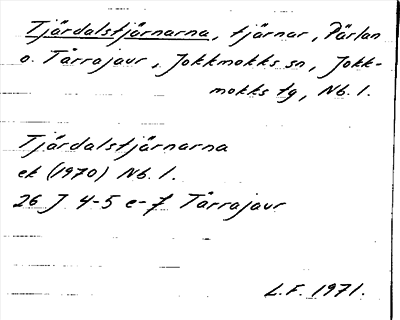 Tjärdalstjärnarna, tjärnar, Pärlan
o. Tårrajaur, Jokkmokks sn, Jokk-
mokks tg, Nb. l.
Tjärdalstjärnarna
ek (1970) Nb. l.
26 J 4-5 e-f Tårrajaur
L.F. 1971.